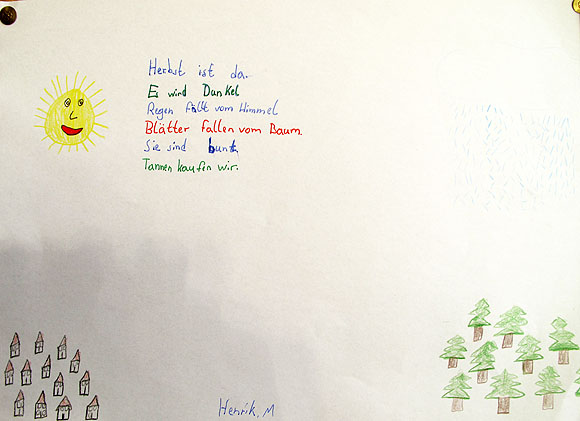 Herbst ist da.
Es wird Dunkel
Regen fällt vom Himmel
Blätter fallen vom Baum.
Sie sind bunt.
Tannen kaufen wir.
Henrik. M